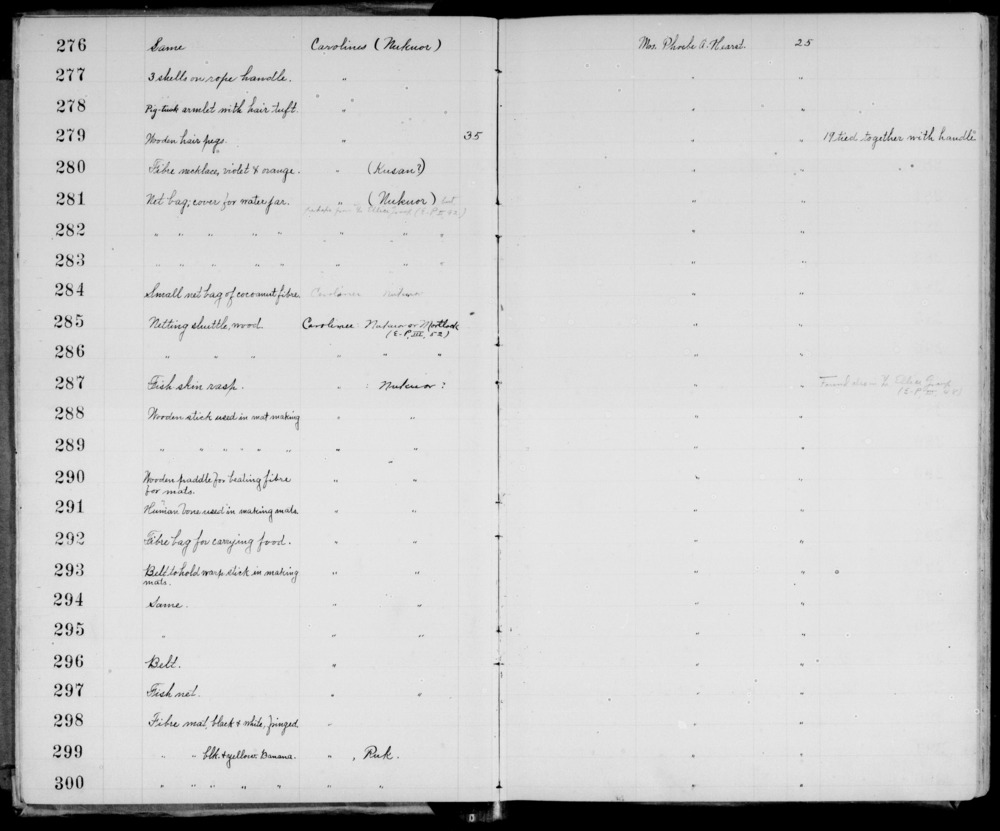 276 Same Carolines (Nukuor) Mrs. Phoebe A. Hearst. 25
277 3 shells on rope handle. " " "
278 Pig-tusk armlet with hair tuft. " " "
279 Wooden hair pegs. " 35 " " 19 tied together with handle
280 Fibre necklace, violet & orange. " (Kusan?) " "
281 Net bag; cover for water jar. " (Nukuor) but
(E-P II 52)
" "
282 " " " " " " " " " "
283 " " " " " " " " " "
284 Small net bag of cocoanut fibre. Carolines Nukuor " "
285 Netting shuttle, wood. Carolines: Nukuor or Mortlock
(E-P, III, 52)
" "
286 " " " " " " " "
287 Fish skin rasp. " : Nukuor: " " Found also in Ellice Group
288 Wooden stick used in mat making " " " "
289 " " " " " " " " "
290 Wooden paddle for beating fibre
for mats.
" " " "
291 Human bone used in making mats. " " " "
292 Fibre bag for carrying food. " " " "
293 Belt to hold warp stick in making
mats.
" " " " o
294 Same. " " " "
295 " " " " "
296 Belt. " " "
297 Fish net. " " " "
298 Fibre mat, black & white, fringed. " " "
299 " " blk. & yellow. Banana. " , Ruk. " "
300 " " " " " " " " "